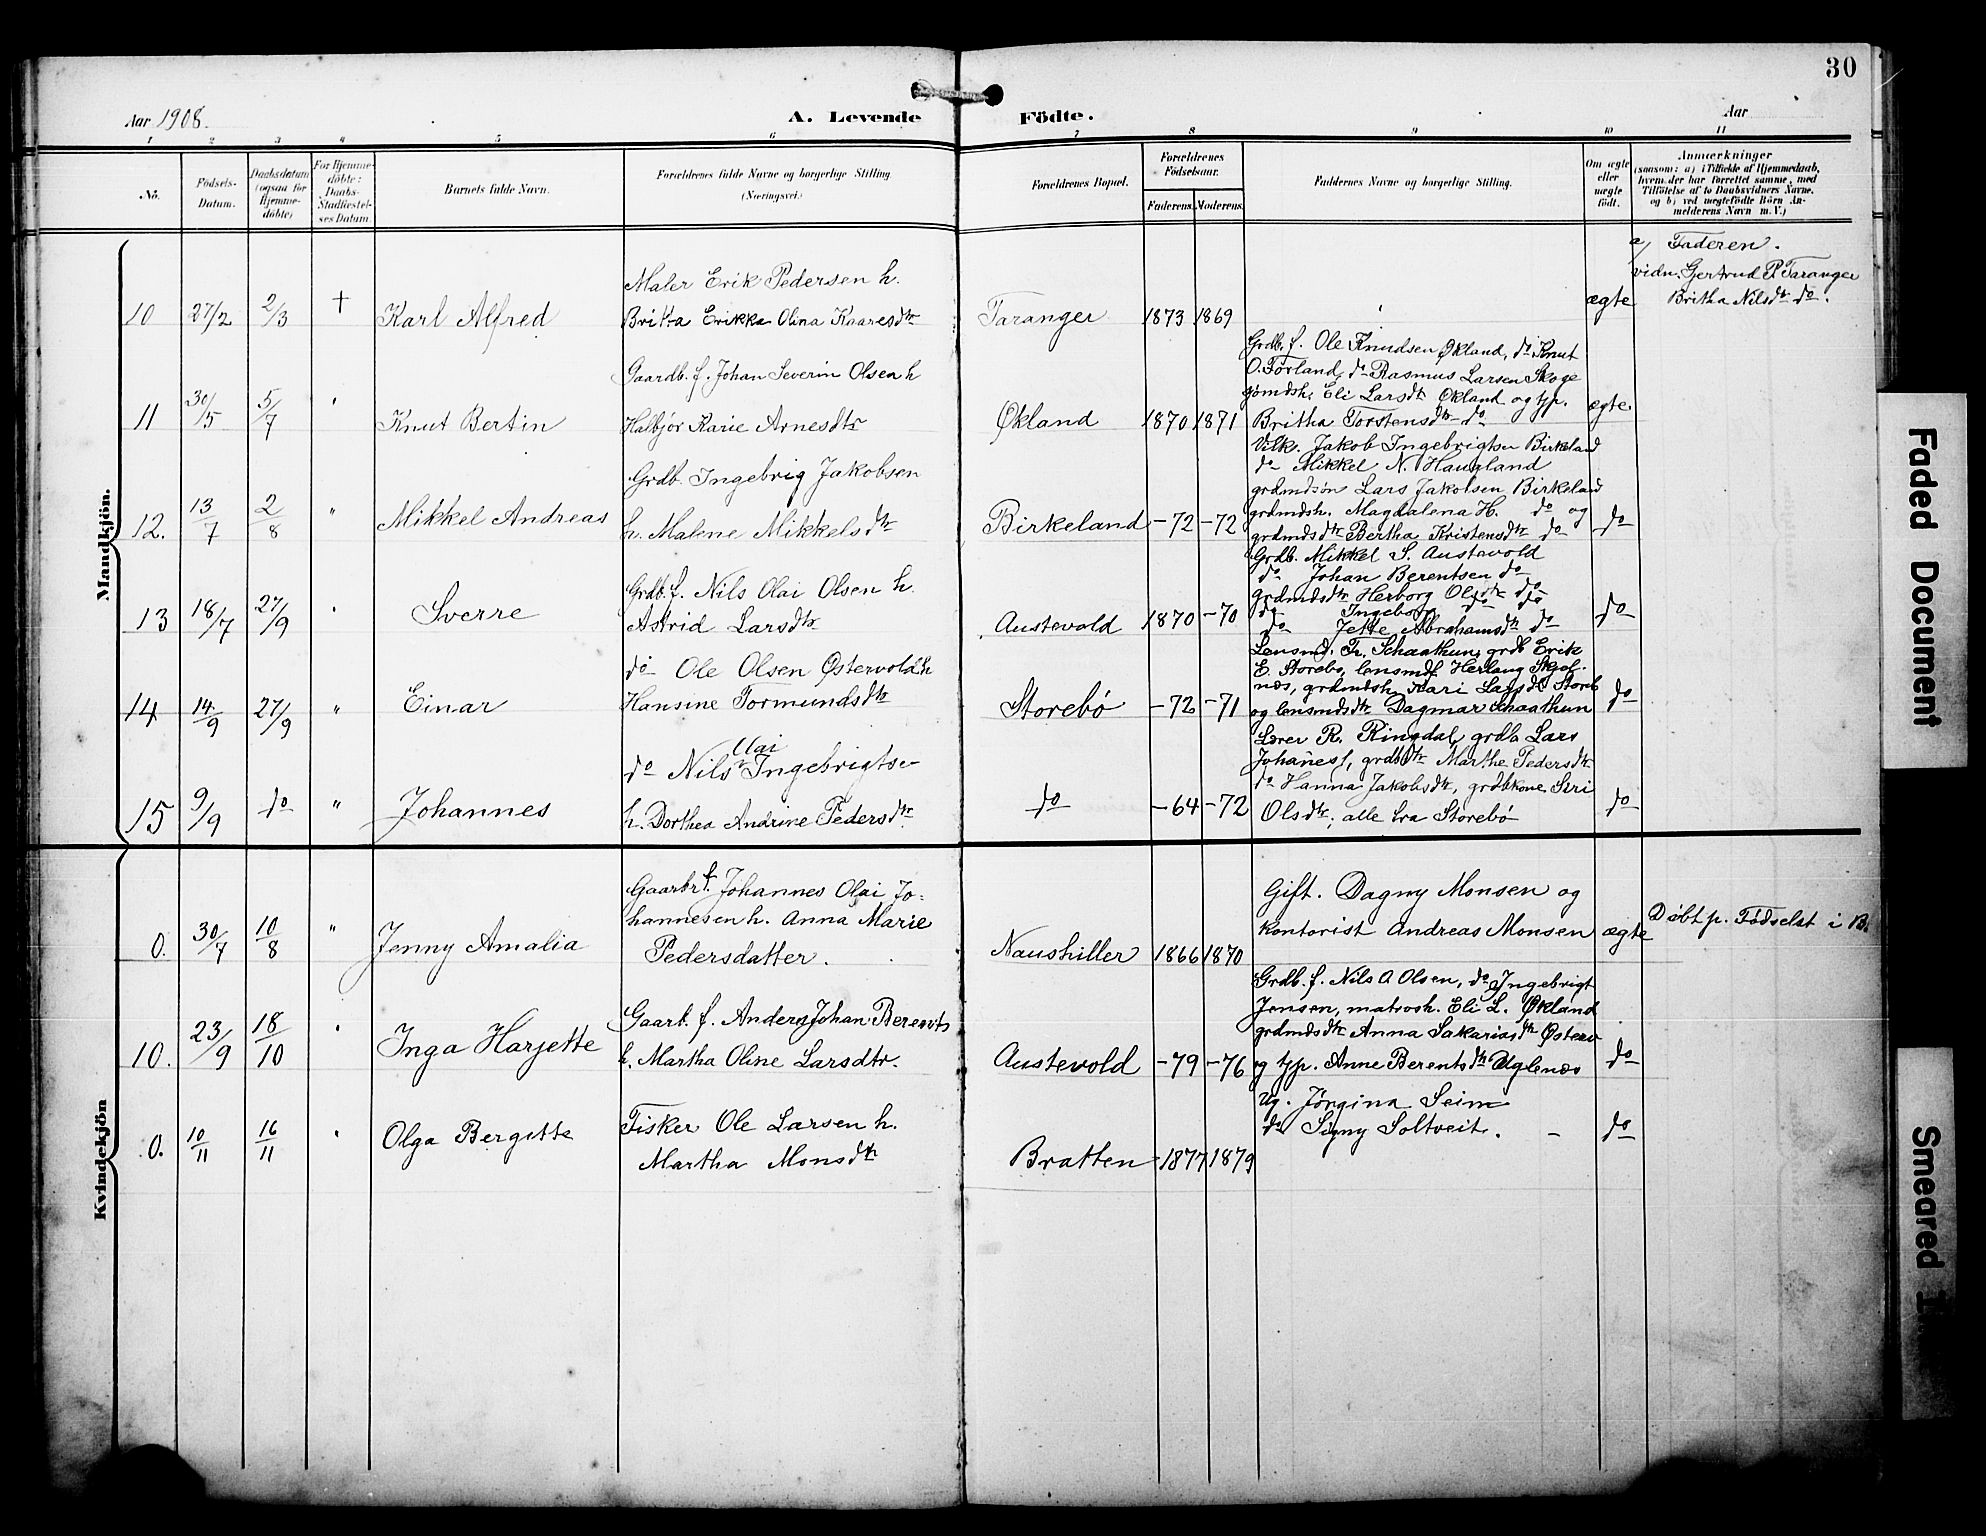 30
Aar 1908.
A. Levende Födte.
Aar
1 2 3 4 5 6 7 8 9 10 11
No.
Födsels-
Datum.
Daabsdatum
(ogsaa for
Hjemme-
döbte)
For Hjemme-
döbte:
Daabs-
Stadfæstel-
ses Datum.
Barnets fulde Navn.
Forældrenes fulde Navne og borgerlige Stilling.
(Næringsvei.)
Forældrenes Bopæl.
Forældrenes
Födselsaar.
Faderens. Moderens.
Faddernes Navne og borgerlige Stilling.
Om ægte
eller
uægte
födt.
Anmærkninger
(saasom: a) i Tilfælde af Hjemmedaab,
hvem der har forrettet samme, med
Tilföielse af to Daabsvidners Navne,
og b) ved uægtefödte Börn An-
melderens Navn m. V.)
Mandkjön.
10 27/2 2/3 + Karl Alfred
Maler Erik Pedersen h.
Britha Erikka Olina Kaaresdtr
Taranger 1873 1869
ægte
a/ Faderen.
vidn. Gertrud P. Taranger
Britha Nilsdtr do.
11 30/5 5/7 " Knut Bertin
Gaardb. f. Johan Severin Olsen h
Halbjør Karie Arnesdtr
Økland 1870 1871
Grdb. f. Ole Knudsen Økland, do Knut
O. Førland, do Rasmus Larsen Skoge
Eli Larsdtr Økland og tjp.
Britha Torstensdtr do
ægte
12. 13/7 2/8 " Mikkel Andreas
Grdb. Ingebrig Jakobsen
h. Malene Mikkelsdtr
Birkeland -72 -72
Vilk. Jakob Ingebrigtsen Birkeland
do Mikkel N. Haugland
grdmdsøn Lars Jakobsen Birkeland
grdmdsh. Magdalena H. do og
grdmdsdtr Bertha Kristensdtr do
do
13 18/7 27/9 " Sverre
Grdb. f. Nils Olai Olsen h.
Astrid Larsdtr
Austevold 1870 -70
Grdb. Mikkel S. Austevold
do Johan Berentsen do
grdmdsdtr Herborg Olsdtr do
do Ingeborg do do
do Jette Abrahamsdtr do
do
14 14/9 27/9 " Einar
do Ole Olsen Østervold h
Hansine Tormundsdtr
Storebø -72 -71
Lensmd. Fr. Schaathun, grdb Erik
E. Storebø, lensmdf. Herlaug Skjel-
næs, grdmdsh. Kari Larsdtr Storeb
og lensmdsdtr Dagmar Schaathun
do
15 9/9 do " Johannes
do Nils Olai Ingebrigtsen
h. Dorthea Andrine Pedersdtr.
do -64 -72
Lærer R. Ringdal, grdb Lars
Johanesf, grdbdtr Marthe Pedersdtr
do Hanna Jakobsdtr, grdbkone Siri
Olsdtr, alle fra Storebø
do
Kvindekjön
0. 30/7 10/8 " Jenny Amalia
Gaarbr f. Johannes Olai Jo-
hannesen h. Anna Marie
Pedersdatter.
Naushiller 1866 1870
Gift. Dagny Monsen og
kontorist Andreas Monsen
ægte
Døbt p. Fødselst i B.
10. 23/9 18/10 " Inga Harjette
Gaarb. f. Anders Johan Berents
h. Martha Oline Larsdtr.
Austevold -79 -76
Grdb. f. Nils A Olsen, do Ingebrigt
Jensen, matrosh. Eli L. Økland
grdmdsdtr Anna Sakariasdtr Østerv
og tjp. Anne Berentsdtr Uglenæs
do
0. 10/11 16/11 " Olga Bergitte
Fisker Ole Larsen h.
Martha Monsdtr
Bratten -1877 1879
Ug. Jörgina Seim
do Signy Soltveit. -
do
Faded Document
Smeared